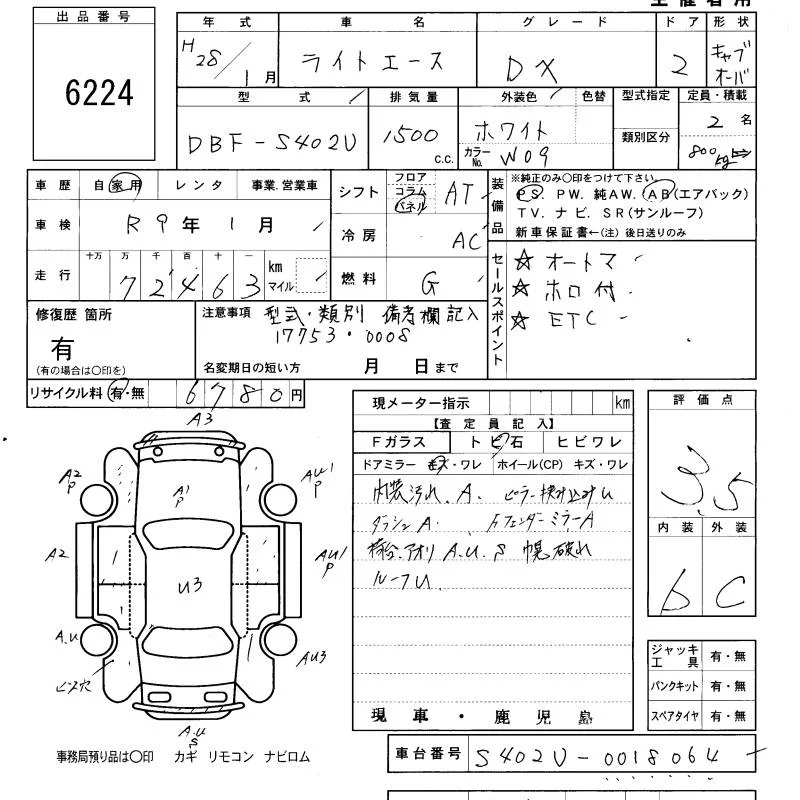 主催者用
出品番号
6224
年式 車名 グレード ドア 形状
H28/1月 ライトエース DX 2 キャブオーバ
型式 排気量 外装色 色替 型式指定 定員・積載
DBF-S402U 1500 c.c. ホワイト 類別区分 2名
カラーNo. W09 800kg
車歴 自家用 レンタ 事業.営業車
車検 R9年1月
走行 十万 万 千 百 十 一
72463 km マイル
シフト フロア コラム パネル AT
冷房 AC
燃料 G
装備品 ※純正のみ〇印をつけて下さい。
PS. PW. 純AW. AB(エアバック)
TV. ナビ. SR(サンルーフ)
新車保証書←(注)後日送りのみ
セールスポイント
☆ オートマ
☆ ホロ付
☆ ETC
修復歴 箇所
有
(有の場合は〇印を)
注意事項 型式・類別 備考欄記入
17753・0008
名変期日の短い方 月 日まで
リサイクル料 有・無 6780円
現メーター指示 km
【査定員記入】
Fガラス トビ石 ヒビワレ
ドアミラー キズ・ワレ ホイール(CP) キズ・ワレ
内装汚れ.A. ピラー
ダッシュA. Fフェンダーミラーa
荷台.アオリ A.U.S 幌破れ
ルーフU
現車・鹿児島
評価点
3.5
内装 外装
D C
ジャッキ工具 有・無
パンクキット 有・無
スペアタイヤ 有・無
A3
A2 P
A1 P
AU1 P
A2
U3
AU1 P
A.U
AU3
ビス穴
A.U S
事務局預り品は〇印 カギ リモコン ナビロム
車台番号 S402U-0018064